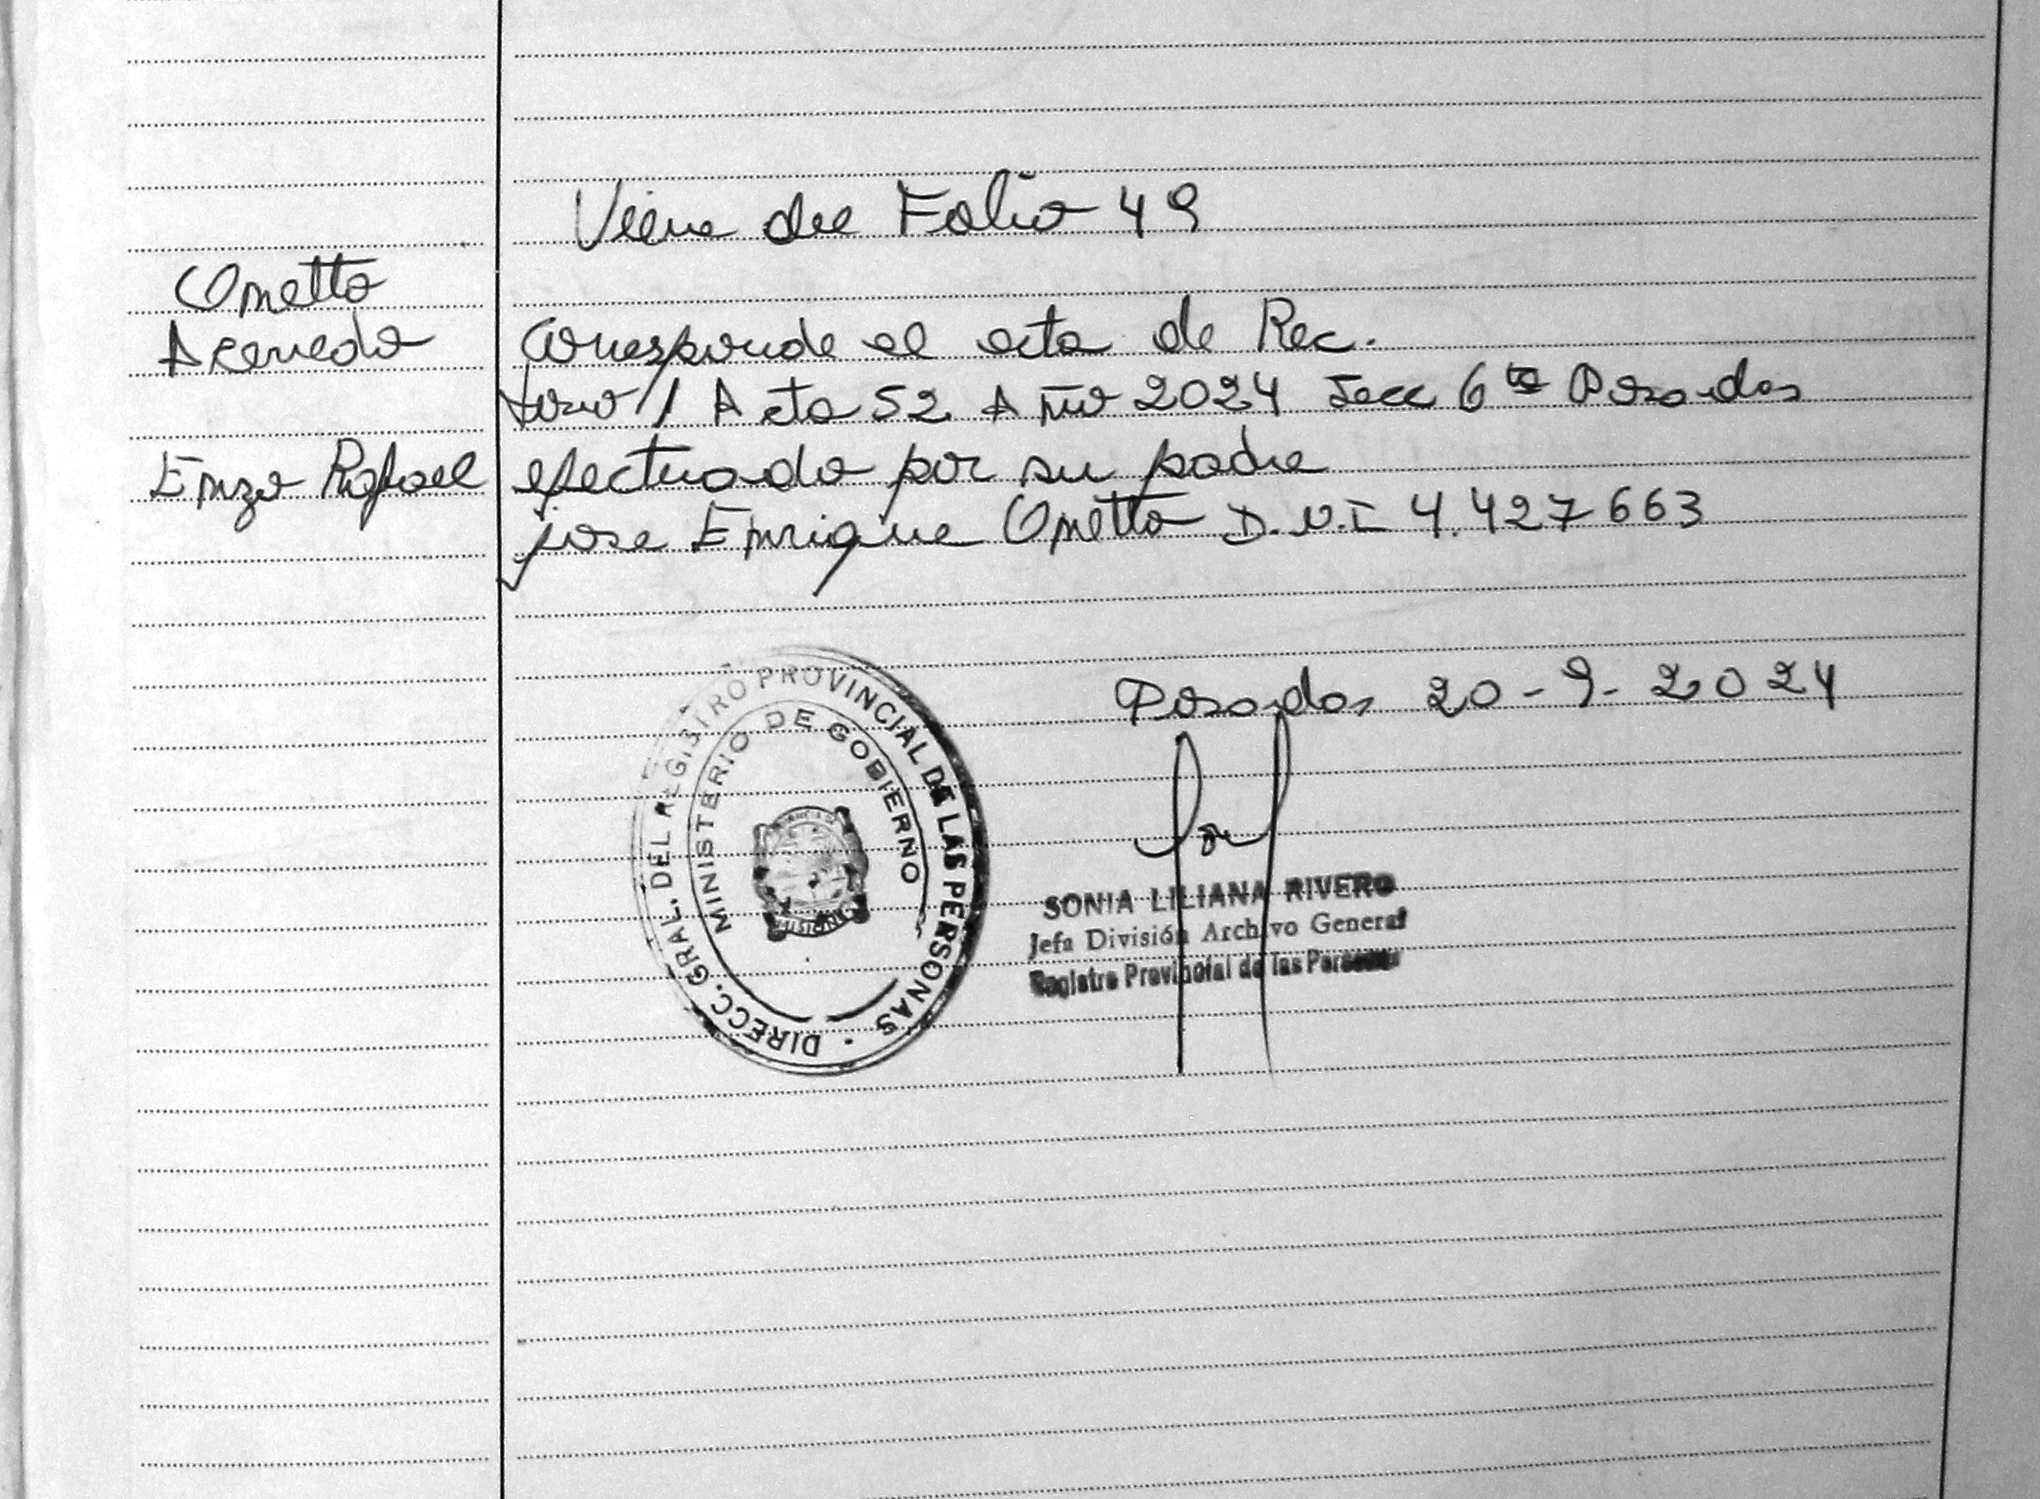 Viene del Folio 49
Ometto
Acevedo
Corresponde al acta de Rec.
tomo 1 Acta 52 Año 2024 Secc 6ta Posadas
Enzo Rafael
efectuado por su padre
jose Enrique Ometto D.N.I 4.427663
Posadas 20-9-2024
DIRECC. GRAL. DEL REGISTRO PROVINCIAL DE LAS PERSONAS
MINISTERIO DE GOBIERNO
MISIONES
SONIA LILIANA RIVERO
Jefa División Archivo General
Registro Provincial de las Personas